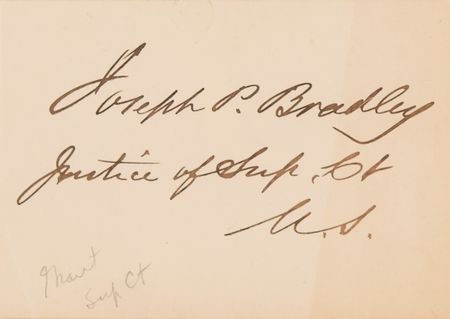 Joseph P. Bradley
Justice of Sup. Ct
U.S.
Grant
Sup Ct